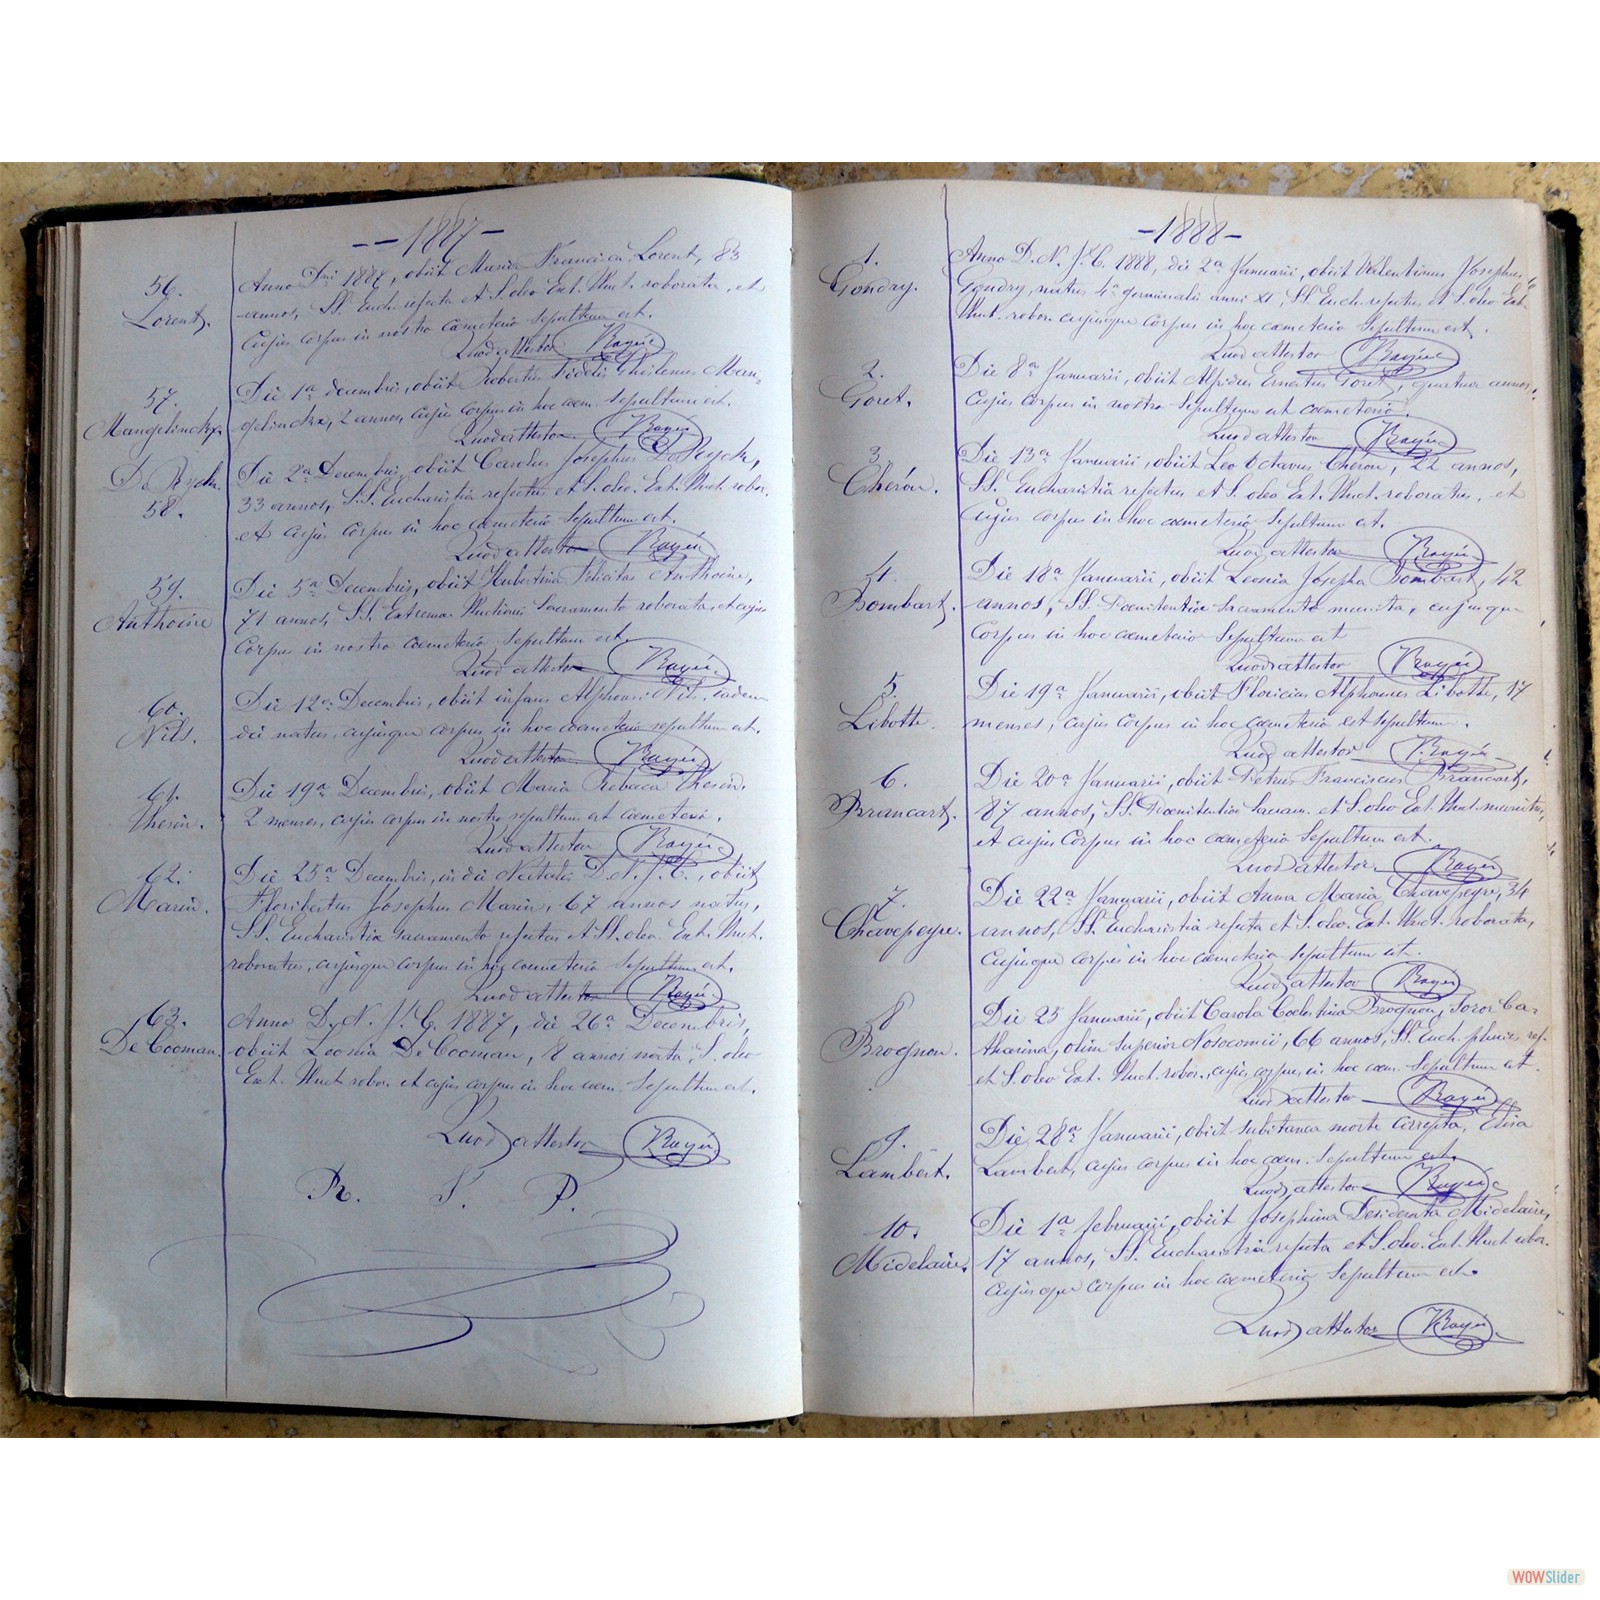 1887
56.
Lorent.
Anno Dni 1887, obiit Maria Francisca Lorent, 83
annos, SS. Euch. refecta et S. oleo Ext. Unct. roborata, et
cujus corpus in nostro coemeterio sepultum est.
Quod attestor
57.
Mangelinckx.
Die 1a decembris, obiit Robertus Fidelis Ghislenus Man-
gelinckx, 2 annos, cujus corpus in hoc coem. sepultum est.
Quod attestor
58.
Die 2a Decembris, obiit Carolus Josephus
33 annos, SS. Eucharistia refectus et S. oleo. Ext. Unct. robor.
et cujus corpus in hoc coemeterio sepultum est.
Quod attestor
59.
Anthoine
Die 5a Decembris, obiit Hubertina Felicitas Anthoine,
71 annos, SS. Extremae Unctionis Sacramento roborata, et cujus
corpus in nostro coemeterio sepultum est.
Quod attestor
60.
Nils.
Die 12a Decembris, obiit infans Alphons. Nils, eadem
die natus, cujusque corpus in hoc coemeterio sepultum est.
Quod attestor
61.
Die 19a Decembris, obiit Maria Rebecca
2 menses, cujus corpus in nostro sepultum est coemeterio.
Quod attestor
62.
Marin.
Die 25a Decembris, in die Natalis D. N. J. C., obiit
Floribertus Josephus Marin, 67 annos natus,
SS. Eucharistiae sacramento refectus et SS. oleo. Ext. Unct.
roboratus, cujusque corpus in hoc coemeterio sepultum est.
Quod attestor
63.
De Cooman.
Anno D. N. J. C. 1887, die 26a Decembris,
obiit Leonia De Cooman, 8 annos nata, S. oleo
Ext. Unct. robor. et cujus corpus in hoc coem. sepultum est.
Quod attestor
1888
1.
Gondry.
Anno D. N. J. C. 1888, die 2a Januarii, obiit Valentinus Josephus
Gondry, natus 4a germinalis anni XI, SS. Euch. refectus et S. oleo Ext.
Unct. robor. cujusque corpus in hoc coemeterio sepultum est.
Quod attestor
2.
Goret.
Die 8a Januarii, obiit Ernestus Goret, quatuor annos,
cujus corpus in nostro sepultum est coemeterio.
Quod attestor
3.
Chéron.
Die 13a Januarii, obiit Leo Octavus Cheron, 22 annos,
SS. Eucharistia refectus et S. oleo Ext. Unct. roboratus, et
cujus corpus in hoc coemeterio sepultum est.
Quod attestor
4.
Bombart.
Die 18a Januarii, obiit Leonia Josepha Bombart, 42
annos, SS. Poenitentiae sacramento munita, cujusque
corpus in hoc coemeterio sepultum est
Quod attestor
5.
Libotte.
Die 19a Januarii, obiit Floricius Alphonsus Libotte, 17
menses, cujus corpus in hoc coemeterio est sepultum.
Quod attestor
6.
Brancart.
Die 20a Januarii, obiit Petrus Franciscus Brancart,
87 annos, SS. Poenitentiae Sacram. et S. oleo Ext. Unct. munitus,
et cujus corpus in hoc coemeterio sepultum est.
Quod attestor
7.
Chavepeyre.
Die 22a Januarii, obiit Anna Maria Chavepeyre, 34
annos, SS. Eucharistia refecta et S. oleo. Ext. Unct. roborata,
cujusque corpus in hoc coemeterio sepultum est.
Quod attestor
8
Brognon.
Die 25 Januarii, obiit Carola Coelestina Brognon, Soror Ca-
tharina, olim superior Nosocomii, 66 annos, SS. Euch. pluries ref.
et S. oleo Ext. Unct. robor., cujus corpus in hoc coem. sepultum est.
Quod attestor
9.
Lambert.
Die 28a Januarii, obiit subitanea morte correpta, Elisa
Lambert, cujus corpus in hoc coem. sepultum est.
Quod attestor
10.
Midelaire.
Die 1a februarii, obiit Josephina Desiderata Midelaire,
17 annos, SS. Eucharistia refecta et S. oleo. Ext. Unct. robor.
cujusque corpus in hoc coemeterio sepultum est.
Quod attestor
WOWSlider